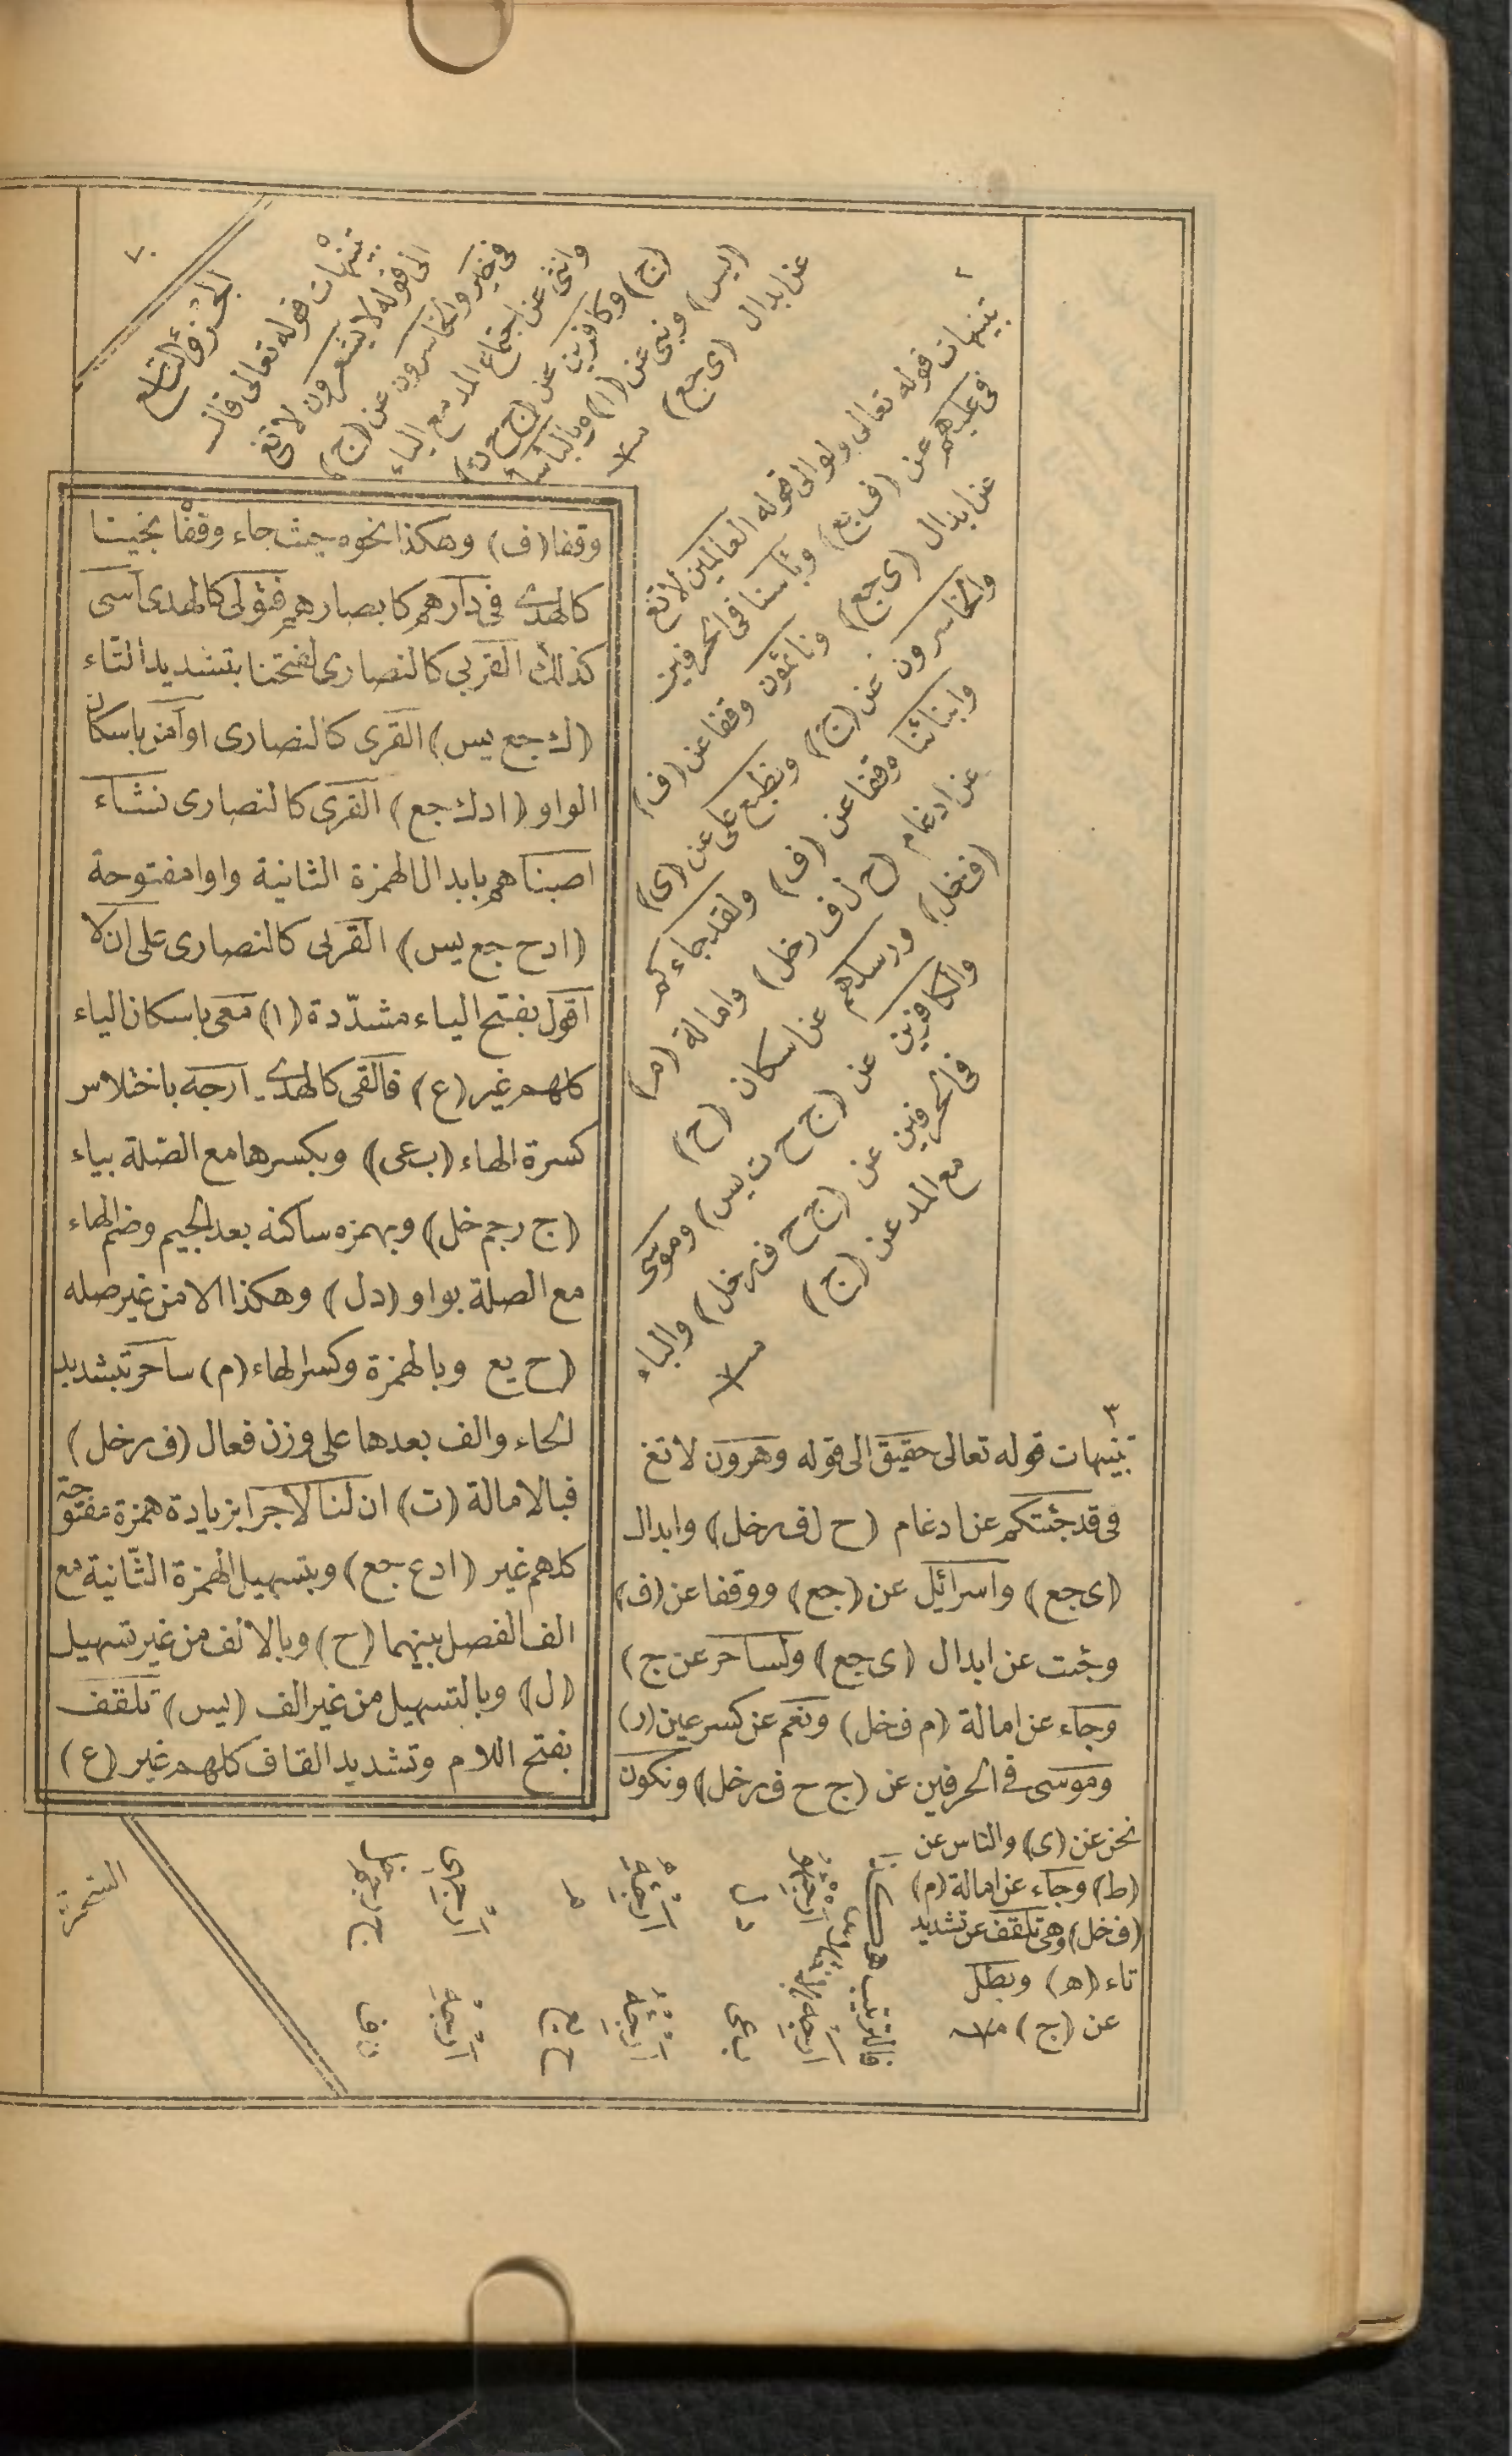 ٧٠
الجزؤ التاسع
تنبيهات قوله تعالى قال
الى قوله لا يشعرون لا تغ
فى خير والخاسرون عن (ج)
وانثى عن اجتماع المد مع الياء
(ج) وكافرين عن (ج ح ت)
(يس) ونبى عن (ا) وبالبأسا
عن ابدال (ى جع)
وقفا (ف) وهكذا نحوه حيث جاء وقفا نجينا
كالهدى فى دارهم كابصارهم فتولى كالهدى آسى
كذلك القربى كالنصارى لفتحنا بتشديد التاء
(ك جع يس) القرى كالنصارى او آمن باسكان
الواو (ا د ك جع) القرى كالنصارى نشاء
اصبناهم بابدال الهمزة الثانية واوا مفتوحة
(ا د ح جع يس) القرى كالنصارى على ان لا
اقول بفتح الياء مشدّدة (ا) معى باسكان الياء
كلهم غير (ع) فالقى كالهدى ارجه باختلاس
كسرة الهاء (ب عى) وبكسرها مع الصّلة بياء
(ج ر جم خل) وبهمزه ساكنه بعد الجيم وضم الهاء
مع الصلة بواو (د ل) وهكذا الا من غير صله
(ح يع وبالهمزة وكسر الهاء (م) ساحر بتشديد
الحاء والف بعدها على وزن فعال (ف ر خل)
فبالامالة (ت) ان لنا لاجرا بزيادة همزة مفتوحة
كلهم غير (ا د ع جع) وبتسهيل الهمزة الثّانية مع
الف الفصل بينهما (ح) وبالالف من غير تسهيل
(ل) وبالتسهيل من غير الف (يس) تلقف
بفتح اللام وتشديد القاف كلهم غير (ع)
٢
تنبيهات قوله تعالى ولو الى قوله العالمين لا تغ
فى عليهم عن (ف يع) وبأسنا فى الحرفين
عن ابدال (ى جع) ونائمون وقفا عن (ف)
والخاسرون عن (ج) ونطبع على عن (ى)
وانبائنا وقفا عن (ف) ولقد جاءكم
عن ادغام (ح ل ف ر خل) وامالة (م)
(ف خل) ورسلهم عن اسكان (ح)
والكافرين عن (ج ح ت يس) وموسى
فى الحرفين عن (ج ح ف ر خل) والياء
مع المد عن (ج)
٣
تنبيهات قوله تعالى حقيق الى قوله وهرون لا تغ
فى قد جئتكم عن ادغام (ح ل ف ر خل) وابدال
(ى جع) واسرائيل عن (جع) ووقفا عن (ف)
وجئت عن ابدال (ى جع) ولساحر عن ج)
وجاء عن امالة (م ف خل) ونعم عن كسر عين (ر)
وموسى فى الحرفين عن (ج ح ف ر خل) ونكون
نحن عن (ى) والناس عن
(ط) وجاء عن امالة (م)
(ف خل) وهى تلقف عن تشديد
تاء (ه) وبطل
عن (ج)
فالترتيب هكذا
ارجه
ب عى
ارجئه
ح يع
ارجه
ن ف
ارجئهو
د ل
ارجئه
م
ارجهى
السّحرة